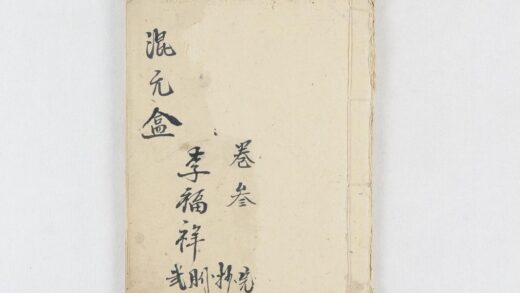 混元盒
卷叁
李福祥
抄完